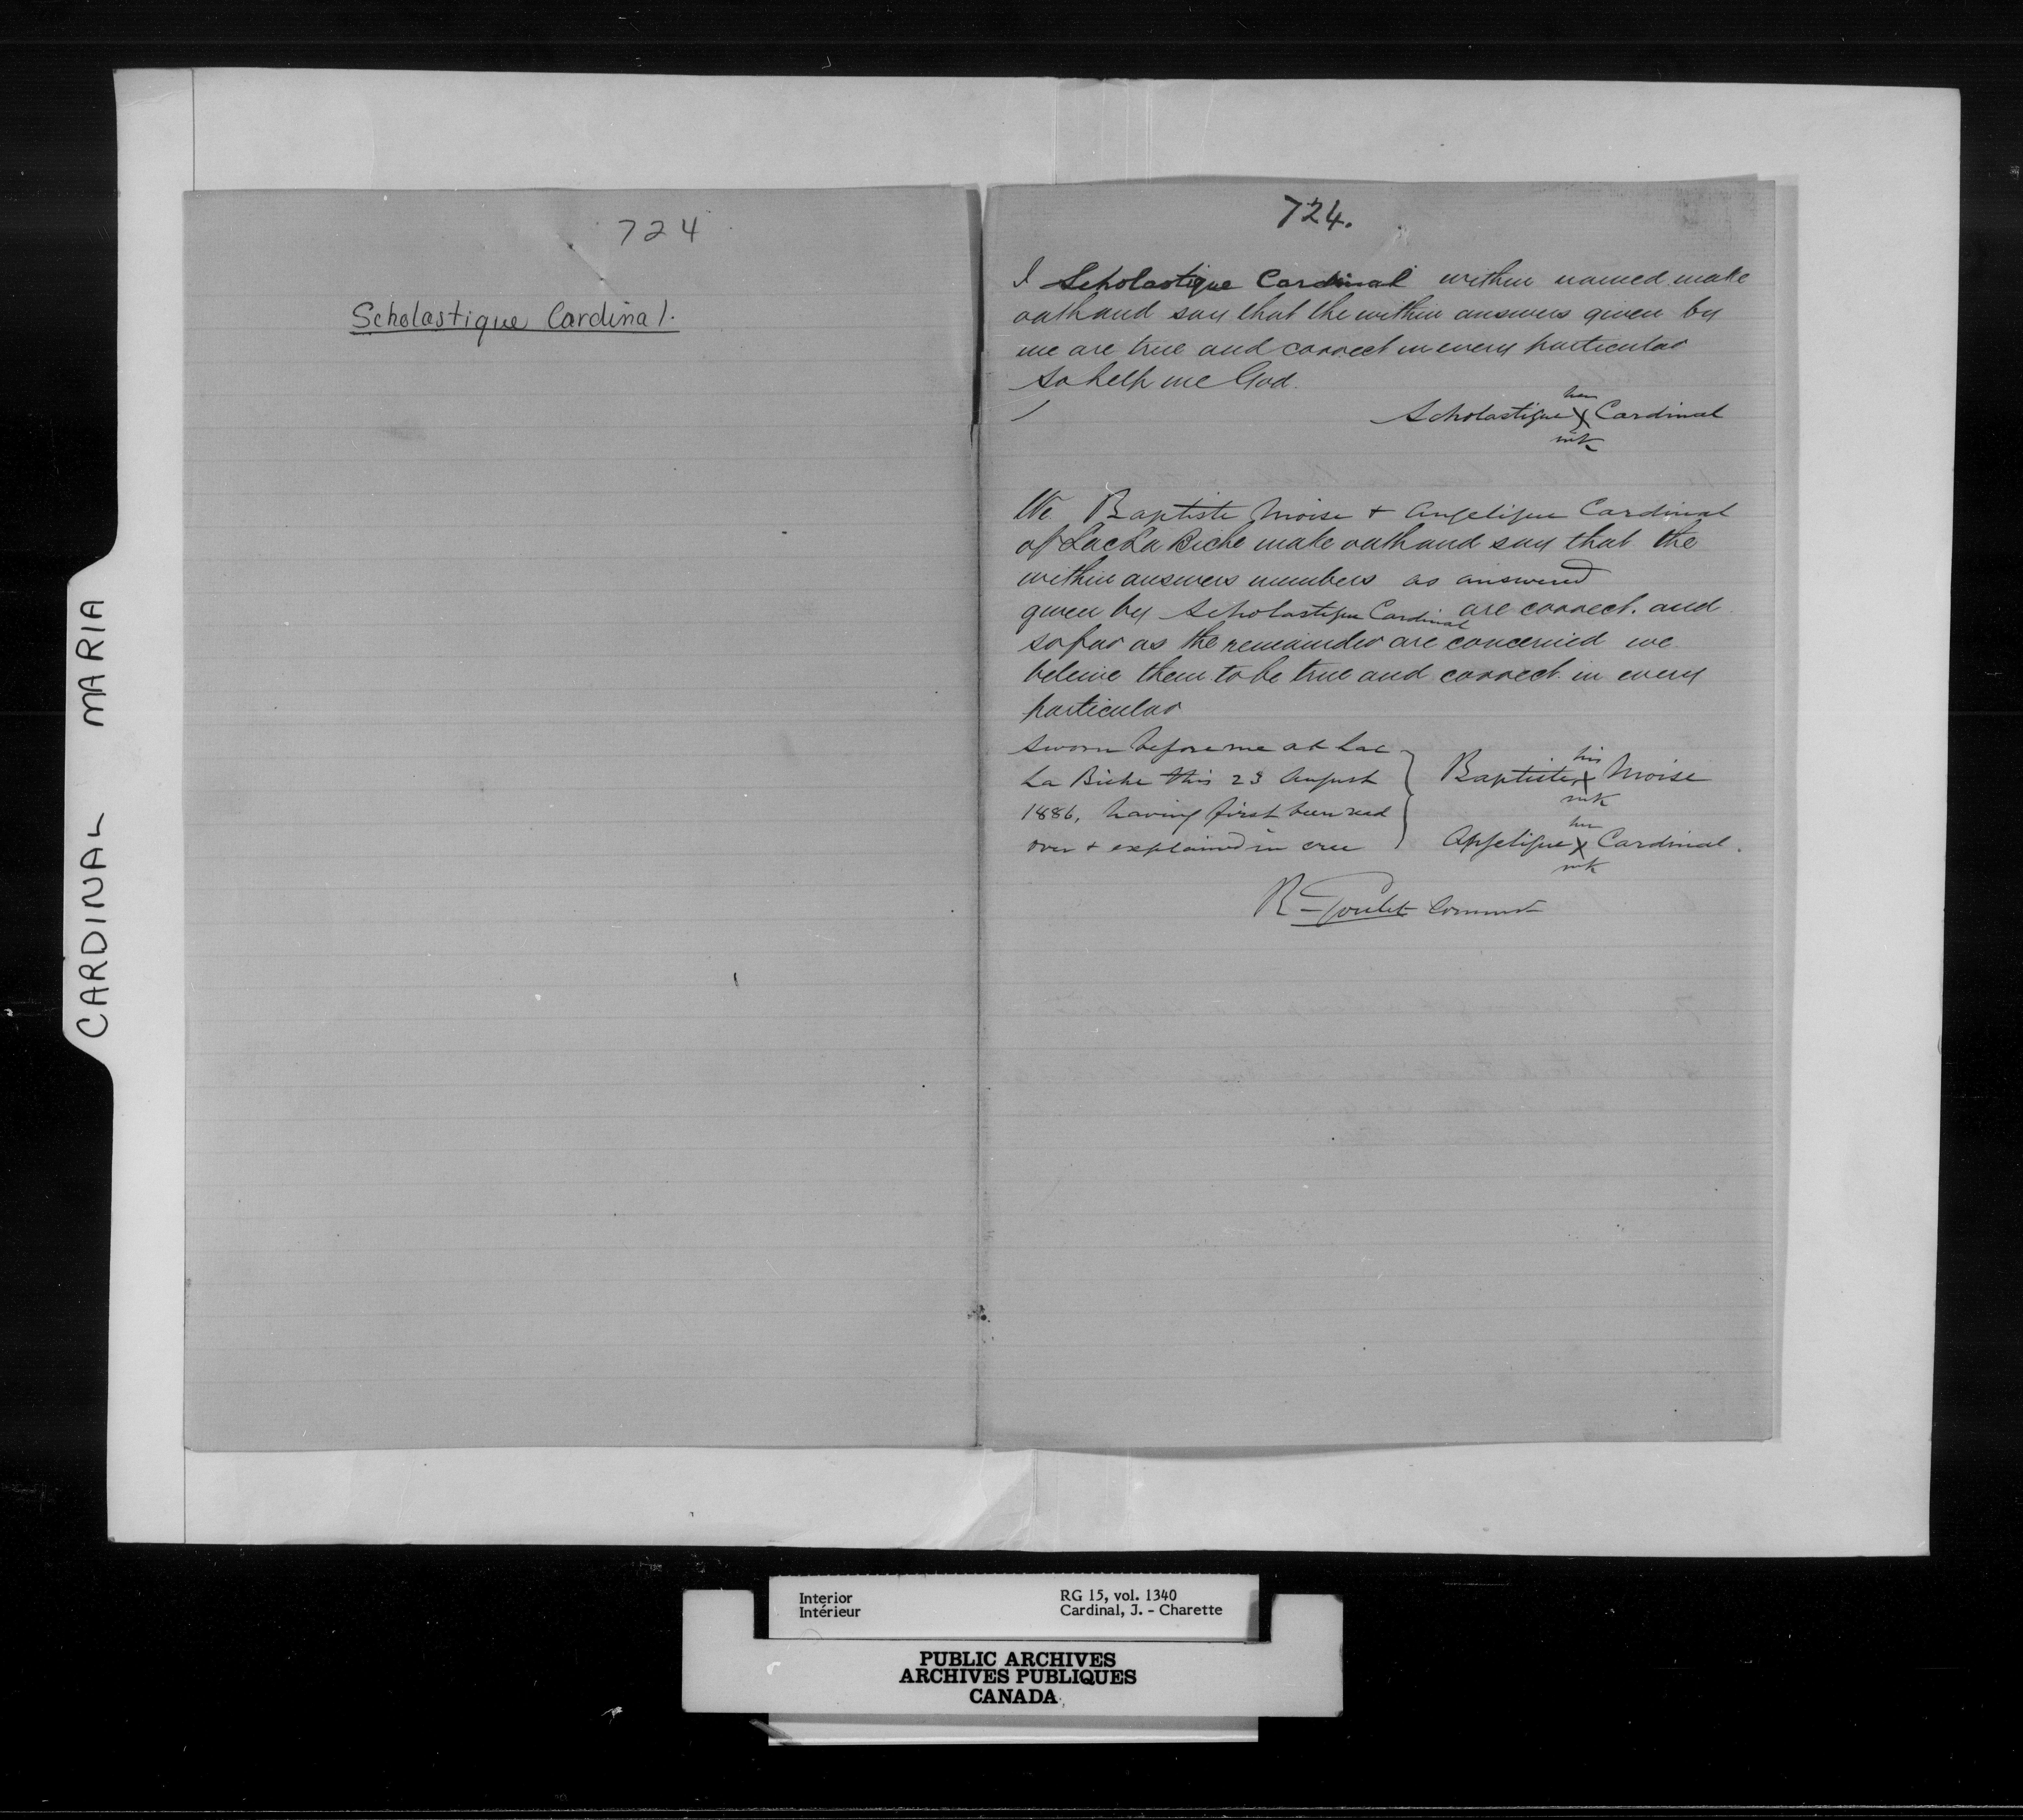 CARDINAL MARIA
724
Scholastique Cardinal.
724.
I Scholastique Cardinal within named make
oath and say that the within answers given by
me are true and correct in every particular
So help me God.
her
Scholastique X Cardinal
mk
We Baptiste Moise + Angelique Cardinal
of Lac La Biche make oath and say that the
within answers numbers as answered
given by Scholastique Cardinal are correct. and
so far as the remainder are concerned we
beleive them to be true and correct in every
particular
Sworn before me at Lac
La Biche this 23 August
1886, having first been read
over + explained in cree
his
Baptiste X Moise
mk
her
Angelique X Cardinal.
mk
R Goulet Commr
Interior
Intérieur
RG 15, vol. 1340
Cardinal, J. - Charette
PUBLIC ARCHIVES
ARCHIVES PUBLIQUES
CANADA